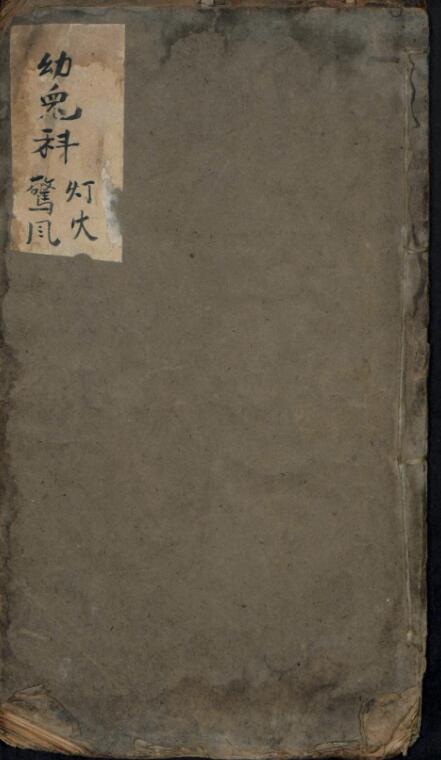 幼兒科
灯火
驚风